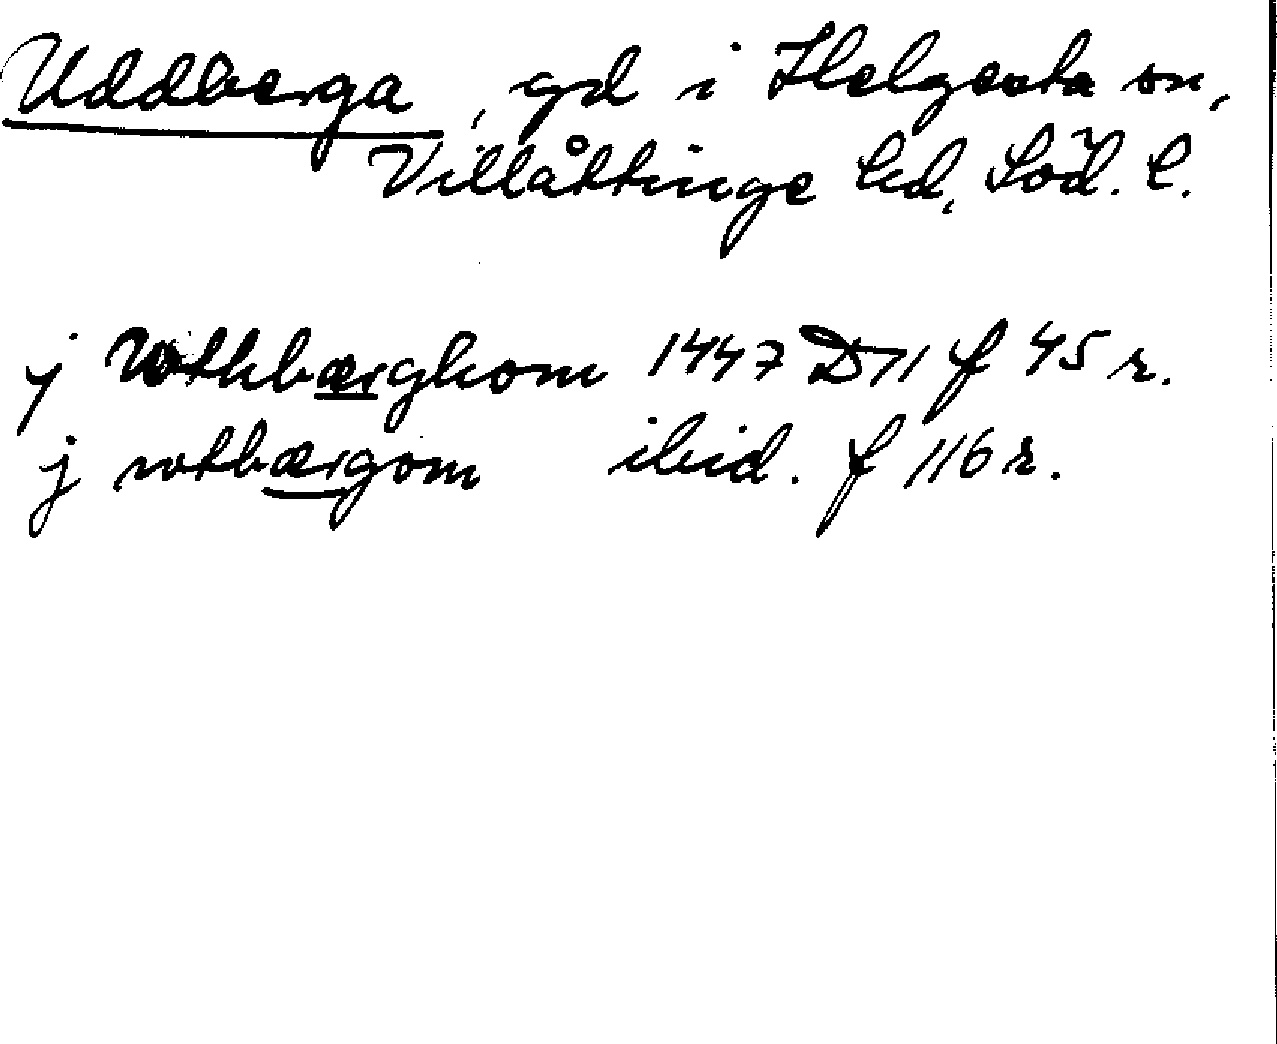 Uddberga, gd i Helgesta sn,
Villåttinge hd, Söd. l.
j Vothbærghom 1447 D 11 f 45 r.
j votbærgom ibid. f 116 r.